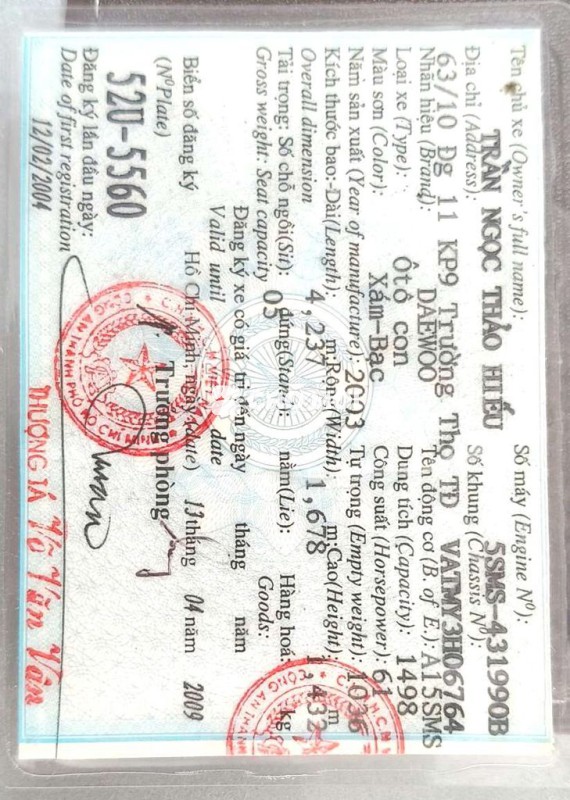 Tên chủ xe (Owner's full name): Số máy (Engine Nº):
TRẦN NGỌC THẢO HIẾU 5SMS-431990B
Địa chỉ (Address): Số khung (Chassis Nº):
63/10 Đg 11 KP9 Trường Thọ TĐ VATMY3H06764
Nhãn hiệu (Brand): DAEWOO Tên động cơ (B. of E.): A15SMS
Loại xe (Type): Ôtô con Dung tích (Capacity): 1498
Màu sơn (Color): Xám-Bạc Công suất (Horsepower): 61
Năm sản xuất (Year of manufacture): 2003 Tự trọng (Empty weight): 1036
Kích thước bao:-Dài(Length): 4,237 m;Rộng(Width) 1,678 m;Cao(Height): 1,432 m
Overall dimension
Tải trọng: Số chỗ ngồi(Sit): 05 đứng(Stand): nằm(Lie): Hàng hoá: kg
Gross weight: Seat capacity Goods:
Đăng ký xe có giá trị đến ngày tháng năm
Valid until date
Biển số đăng ký Hồ Chí Minh, ngày (date) 13 tháng 04 năm 2009
(NºPlate) Trưởng phòng
52U-5560
Đăng ký lần đầu ngày:
Date of first registration
12/02/2004
CÔNG AN THÀNH PHỐ HỒ CHÍ MINH
THƯỢNG TÁ Võ Văn Vân